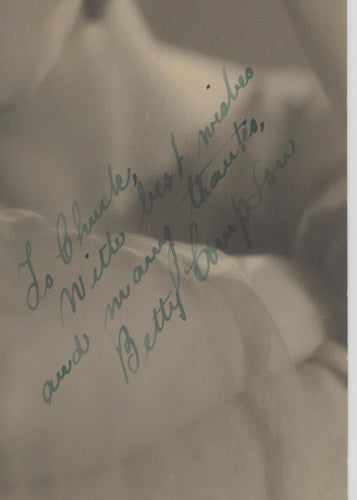 To Chuck,
With best wishes
and many thanks,
Betty Compton